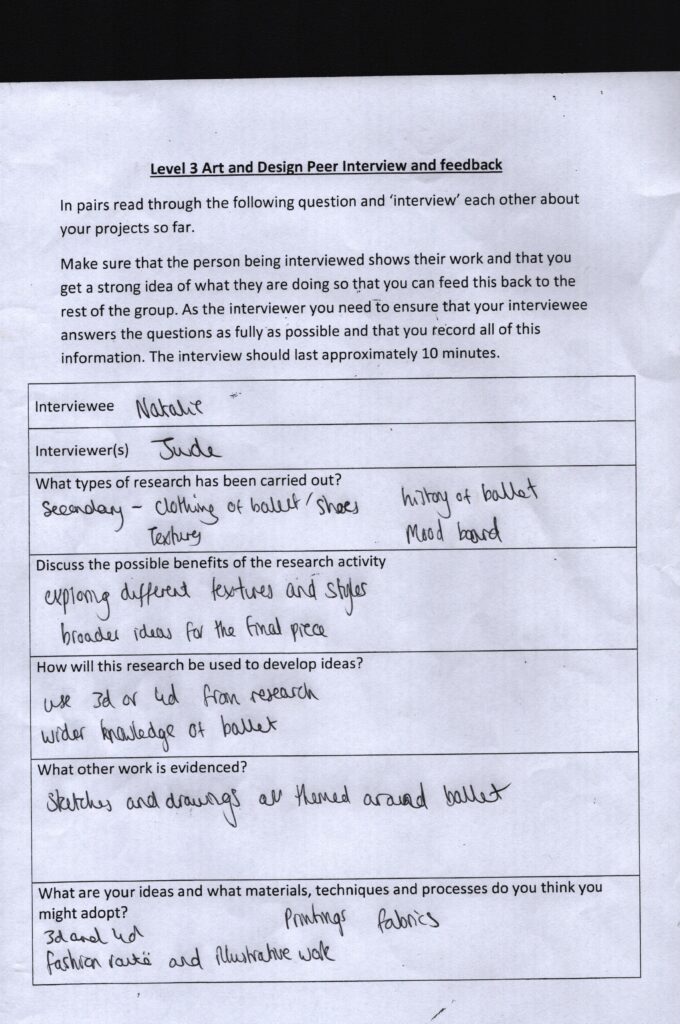 Level 3 Art and Design Peer Interview and feedback
In pairs read through the following question and ‘interview’ each other about
your projects so far.
Make sure that the person being interviewed shows their work and that you
get a strong idea of what they are doing so that you can feed this back to the
rest of the group. As the interviewer you need to ensure that your interviewee
answers the questions as fully as possible and that you record all of this
information. The interview should last approximately 10 minutes.
Interviewee Natalie
Interviewer(s) Jude
What types of research has been carried out?
Secondary – clothing of ballet/shoes history of ballet
Textures Mood board
Discuss the possible benefits of the research activity
exploring different textures and styles
broader ideas for the final piece
How will this research be used to develop ideas?
use 3d or 4d from research
wider knowledge of ballet
What other work is evidenced?
sketches and drawings all themed around ballet
What are your ideas and what materials, techniques and processes do you think you
might adopt? Printings fabrics
3d and 4d
fashion route and illustrative work